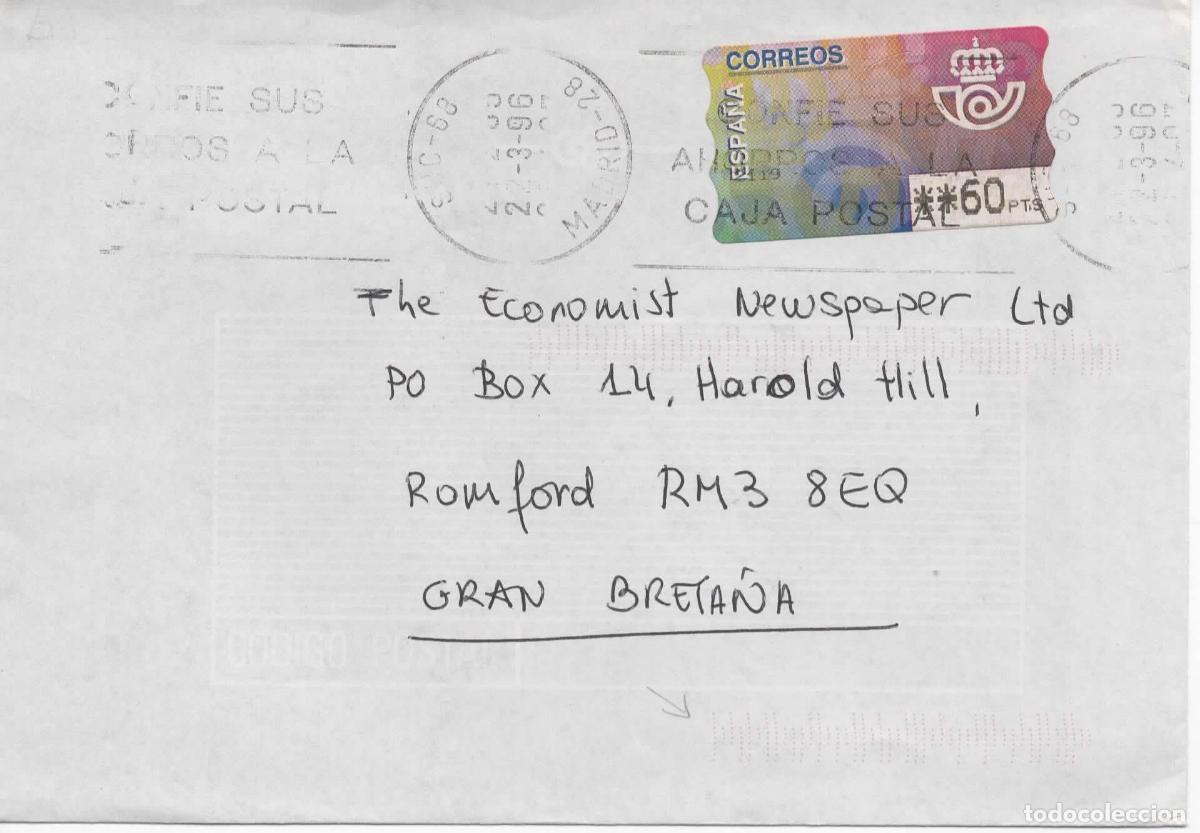 CONFIE SUS
A LA
POSTAL
SUC-68
22-3-96
MADRID-28
CORREOS
ESPAÑA
CONFIE SUS
AHORROS A LA
CAJA POSTAL
119
**60 PTS
-3-96
The Economist Newspaper Ltd
PO Box 14, Harold Hill,
Romford RM3 8EQ
GRAN BRETAÑA
CODIGO POSTAL
todocoleccion